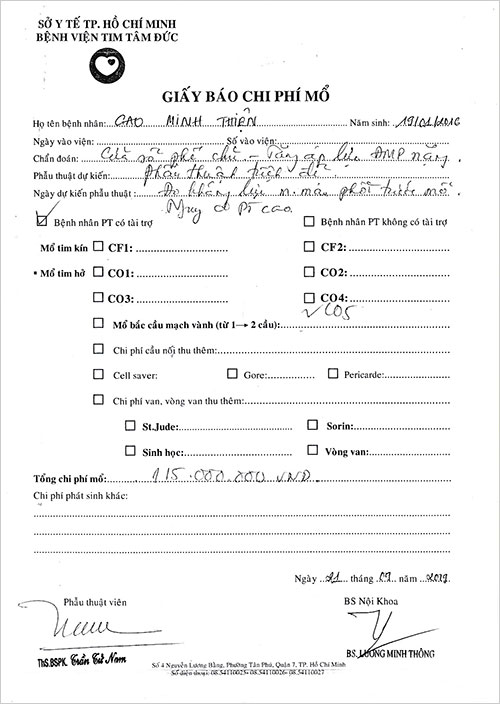 SỞ Y TẾ TP. HỒ CHÍ MINH
BỆNH VIỆN TIM TÂM ĐỨC
GIẤY BÁO CHI PHÍ MỔ
Họ tên bệnh nhân: CAO MINH THIỆN Năm sinh: 19/01/2016
Ngày vào viện: Số vào viện:
Chẩn đoán: Cửa sổ phế chủ - Tăng áp lực ĐMP nặng.
Phẫu thuật dự kiến: Phẫu thuật triệt để
Ngày dự kiến phẫu thuật: Đo kháng lực m. máu phổi trước mổ
Nguy cơ PT cao.
Bệnh nhân PT có tài trợ Bệnh nhân PT không có tài trợ
Mổ tim kín CF1: CF2:
* Mổ tim hở CO1: CO2:
CO3: CO4:
✓CO5
Mổ bắc cầu mạch vành (từ 1→ 2 cầu):
Chi phí cầu nối thu thêm:
Cell saver: Gore: Pericarde:
Chi phí van, vòng van thu thêm:
St.Jude: Sorin:
Sinh học: Vòng van:
Tổng chi phí mổ: 115.000.000 VND
Chi phí phát sinh khác:
Ngày 21 tháng 07 năm 2019
Phẫu thuật viên BS Nội Khoa
ThS.BSPK. Trần Tử Nam BS. LƯƠNG MINH THÔNG
Số 4 Nguyễn Lương Bằng, Phường Tân Phú, Quận 7, TP. Hồ Chí Minh
Số điện thoại: 08.54110025- 08.54110026- 08.54110027